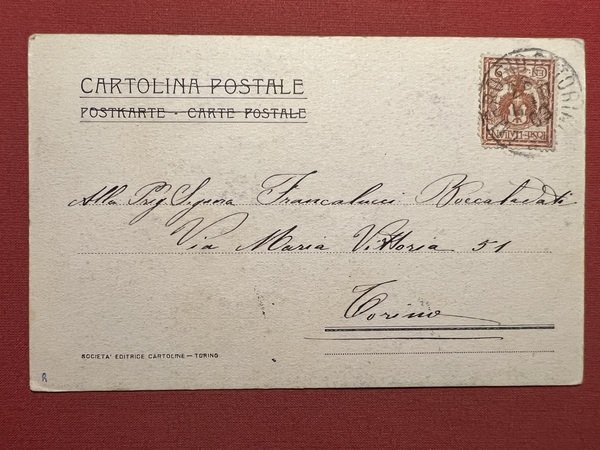 CARTOLINA POSTALE
POSTKARTE - CARTE POSTALE
Alla Preg. Signora Francalucci Boccabadati
Via Maria Vittoria 51
Torino
SOCIETA' EDITRICE CARTOLINE — TORINO
R